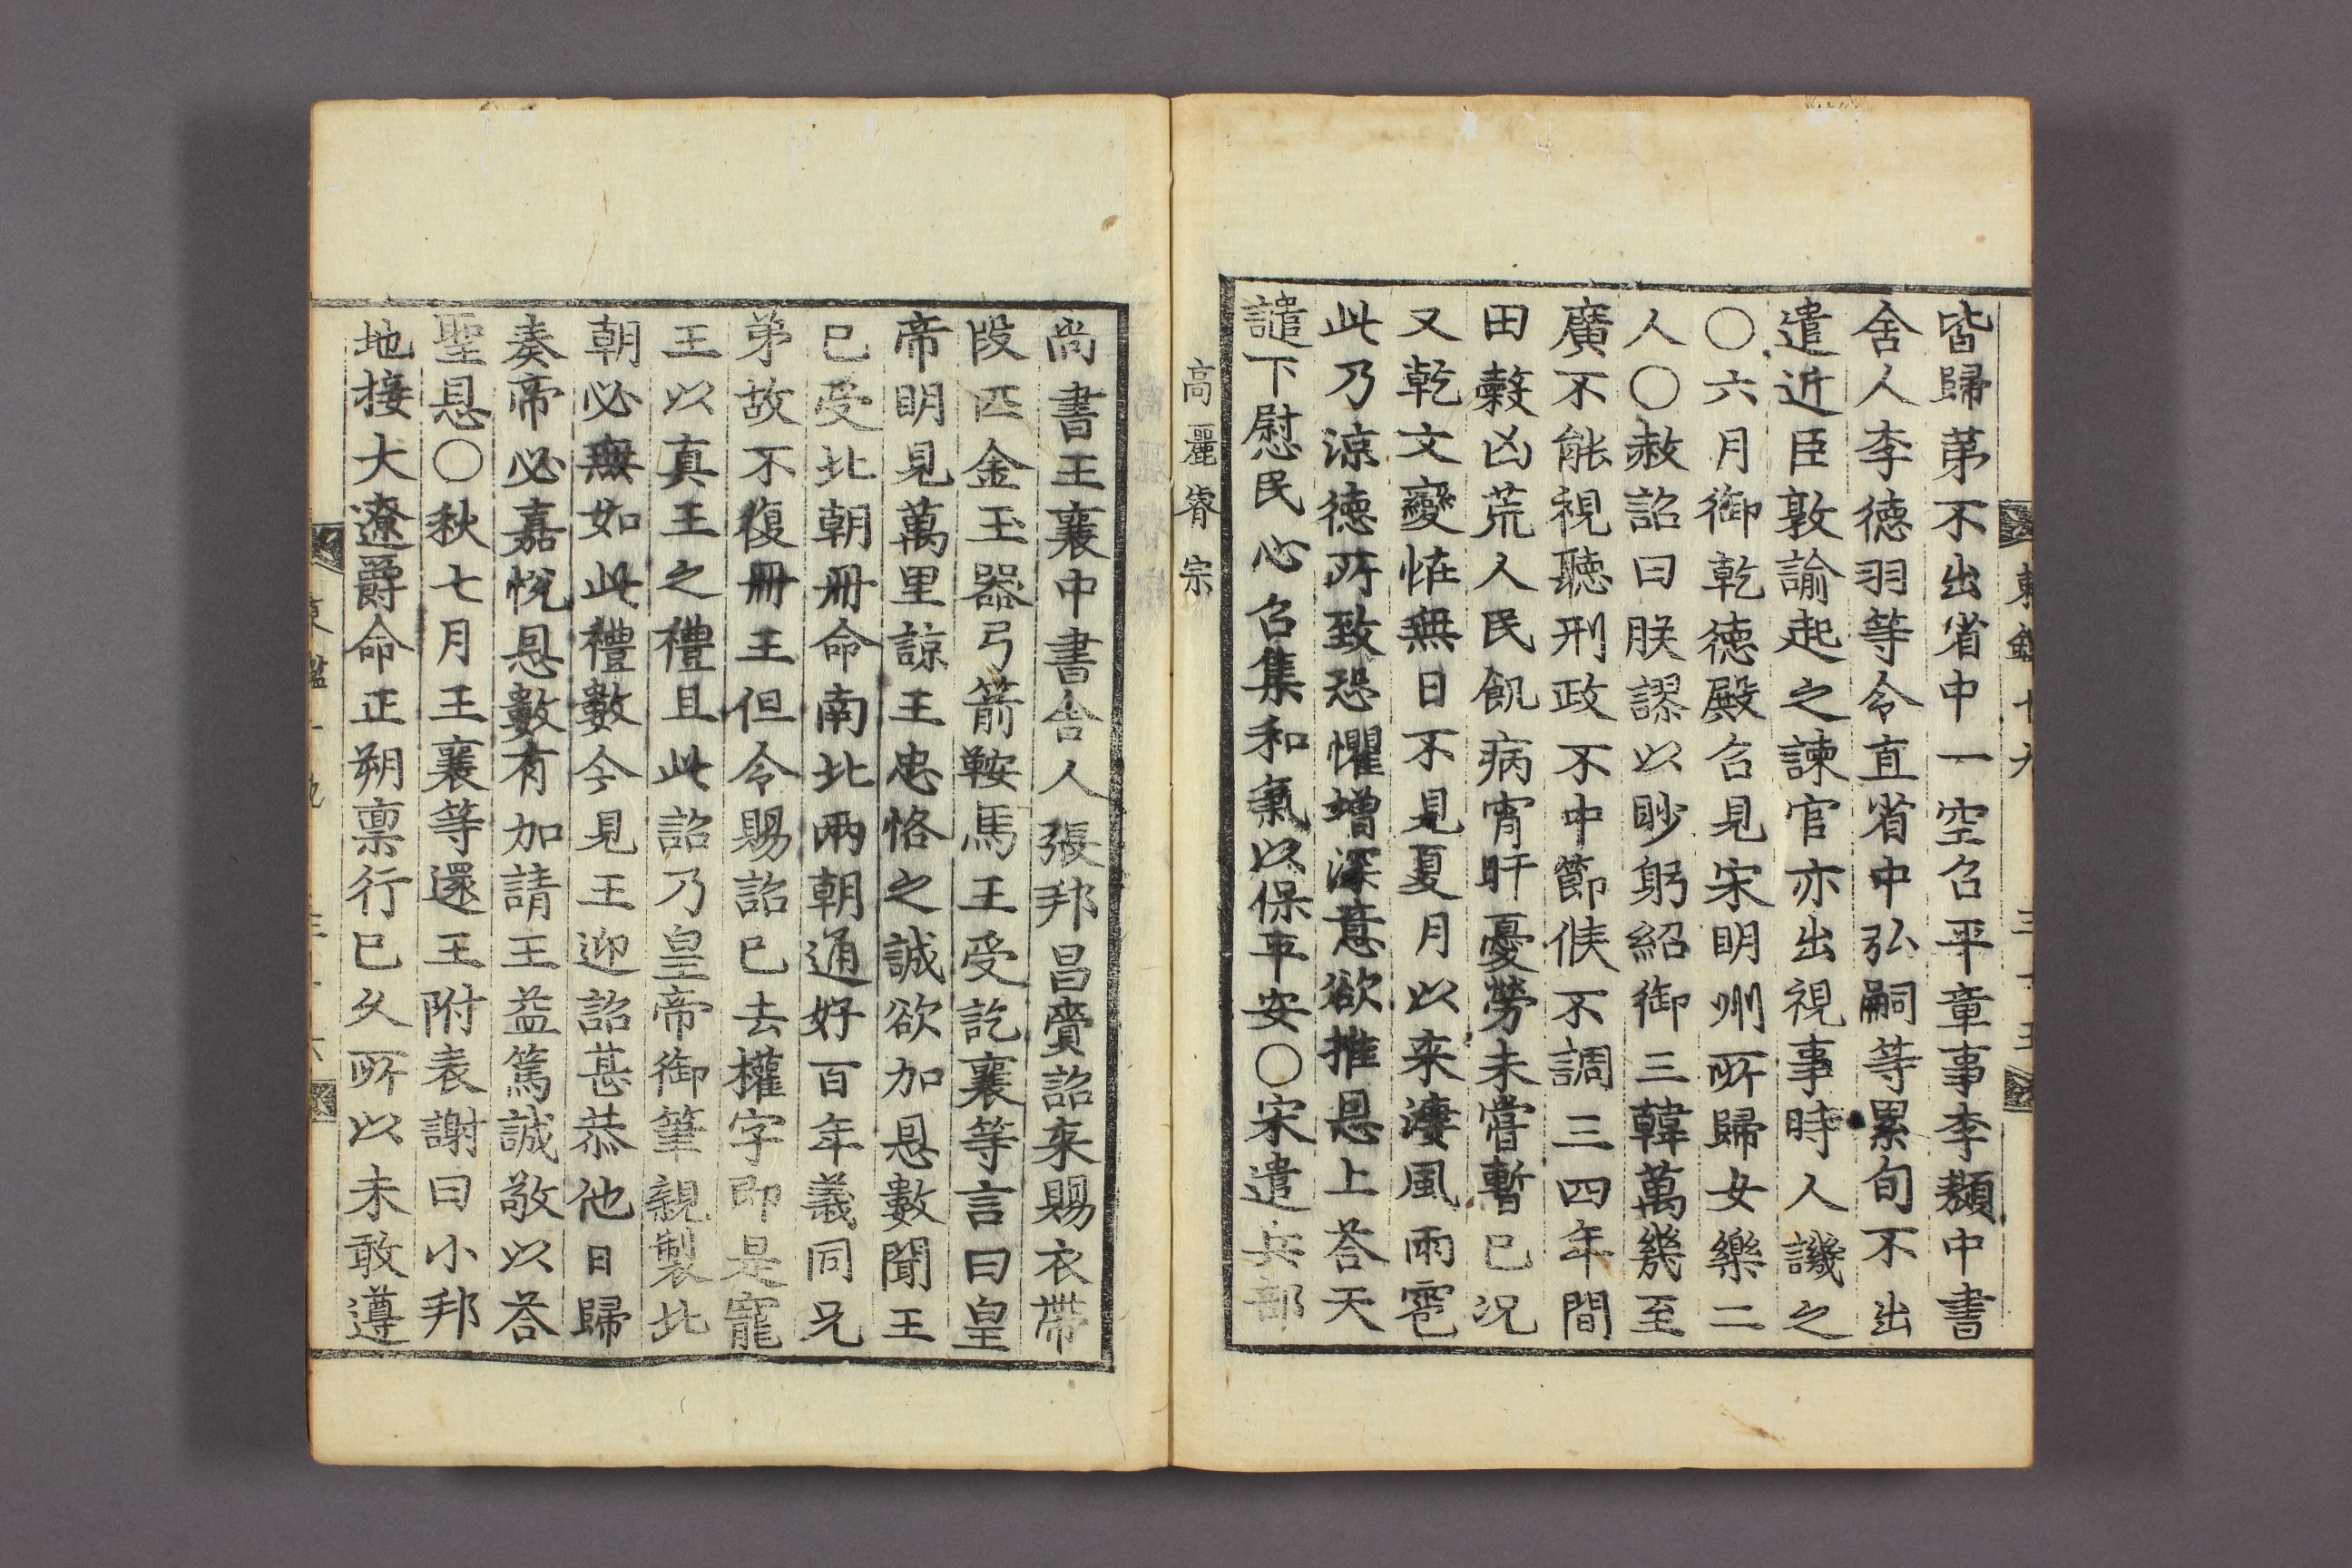 皆歸第不出省中一空召平章事李䫨中書
舍人李德羽等令直省中弘嗣等累旬不出
遣近臣敦諭起之諫官亦出視事時人譏之
○六月御乾德殿召見宋明州所歸女樂二
人○赦詔曰朕謬以眇躬紹御三韓萬幾至
廣不能視聽刑政不中節候不調三四年間
田穀凶荒人民飢病宵旰憂勞未嘗暫已况
又乾文變怪無日不見夏月以来凄風雨雹
此乃涼德所致恐懼增深意欲推恩上荅天
譴下慰民心召集和氣以保平安○宋遣兵部
高麗睿宗
尚書王襄中書舎人張邦昌賫詔来賜衣帶
段匹金玉器弓箭鞍馬王受訖襄等言曰皇
帝明見萬里諒王忠恪之誠欲加恩數聞王
已受北朝冊命南北兩朝通好百年義同兄
弟故不復冊王但令賜詔已去權字即是寵
王以真王之禮且此詔乃皇帝御筆親製北
朝必無如此禮數今見王迎詔甚恭他日歸
奏帝必嘉悅恩數有加請王益篤誠敬以荅
聖恩○秋七月王襄等還王附表謝曰小邦
地接大遼爵命正朔禀行已久所以未敢遵